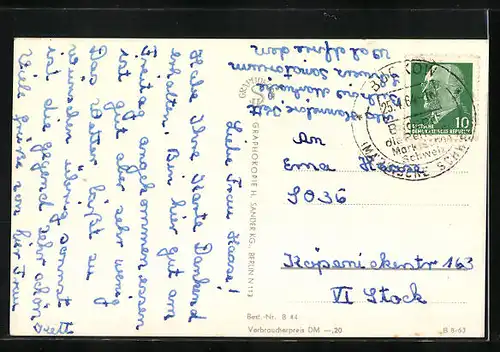 Liebe Frau Haase!
Habe Ihre Karte Dankend
erhalten. Bin hier gut am
Freitag angekommen essen
ist gut aber sehr wenig
Das Wetter läßt zu
wünschen übrig sonst
ist die Gegend sehr schön
Viele Grüße von hier Frau
Zett
Hannelore Zett
Sanatorium
Waldfrieden
GRAPHOKOPIE H. SANDER KG. BERLIN N 113
BUCKOW
die Perle
Schweiz
10
DEUTSCHE
DEMOKRATISCHE REPUBLIK
An
Erna Haase
SO36
Köpenickerstr 163
VI Stock
Best.-Nr. B 44
Verbraucherpreis DM —,20
B 8-63